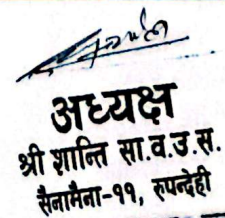 अध्यक्ष
श्री शान्ति सा.व.उ.स.
सैनामैना-११, रुपन्देही